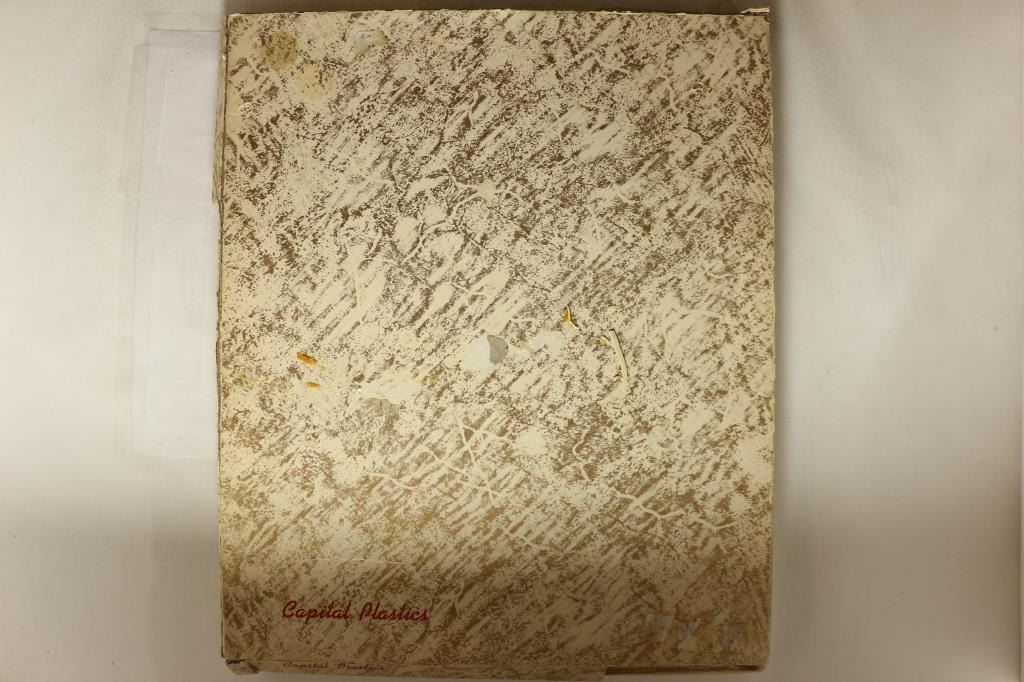 Capital Plastics
Capital Plastics